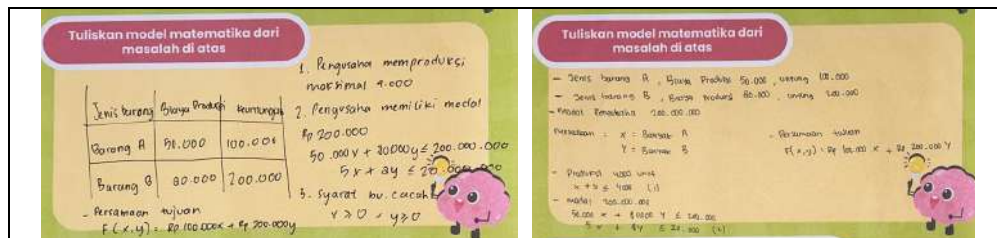 Tuliskan model matematika dari
masalah di atas
Jenis barang Biaya Produksi keuntungan
Barang A 50.000 100.000
Barang B 80.000 200.000
- Persamaan tujuan
F(x,y) = Rp 100.000x + Rp 200.000y
1. Pengusaha memproduksi
maksimal 4.000
2. Pengusaha memiliki modal
Rp 200.000
50.000x + 80000y ≤ 200.000.000
5x + 8y ≤ 20.000
3. Syarat bil. cacah
x ≥ 0 , y ≥ 0
Tuliskan model matematika dari
masalah di atas
- Jenis barang A , Biaya Produksi 50.000 , untung 100.000
- Jenis barang B , Biaya Produksi 80.000 , untung 200.000
- Modal Pengusaha 200.000.000
Pemisalan : x = Barang A
Y = Barang B
- Persamaan tujuan
F(x,y) = Rp 100.000 x + Rp 200.000 Y
- Produksi 4000 unit
x + y ≤ 4000 (1)
- modal 200.000.000
50.000 x + 80000 Y ≤ 200.000
5x + 8Y ≤ 20.000 (2)